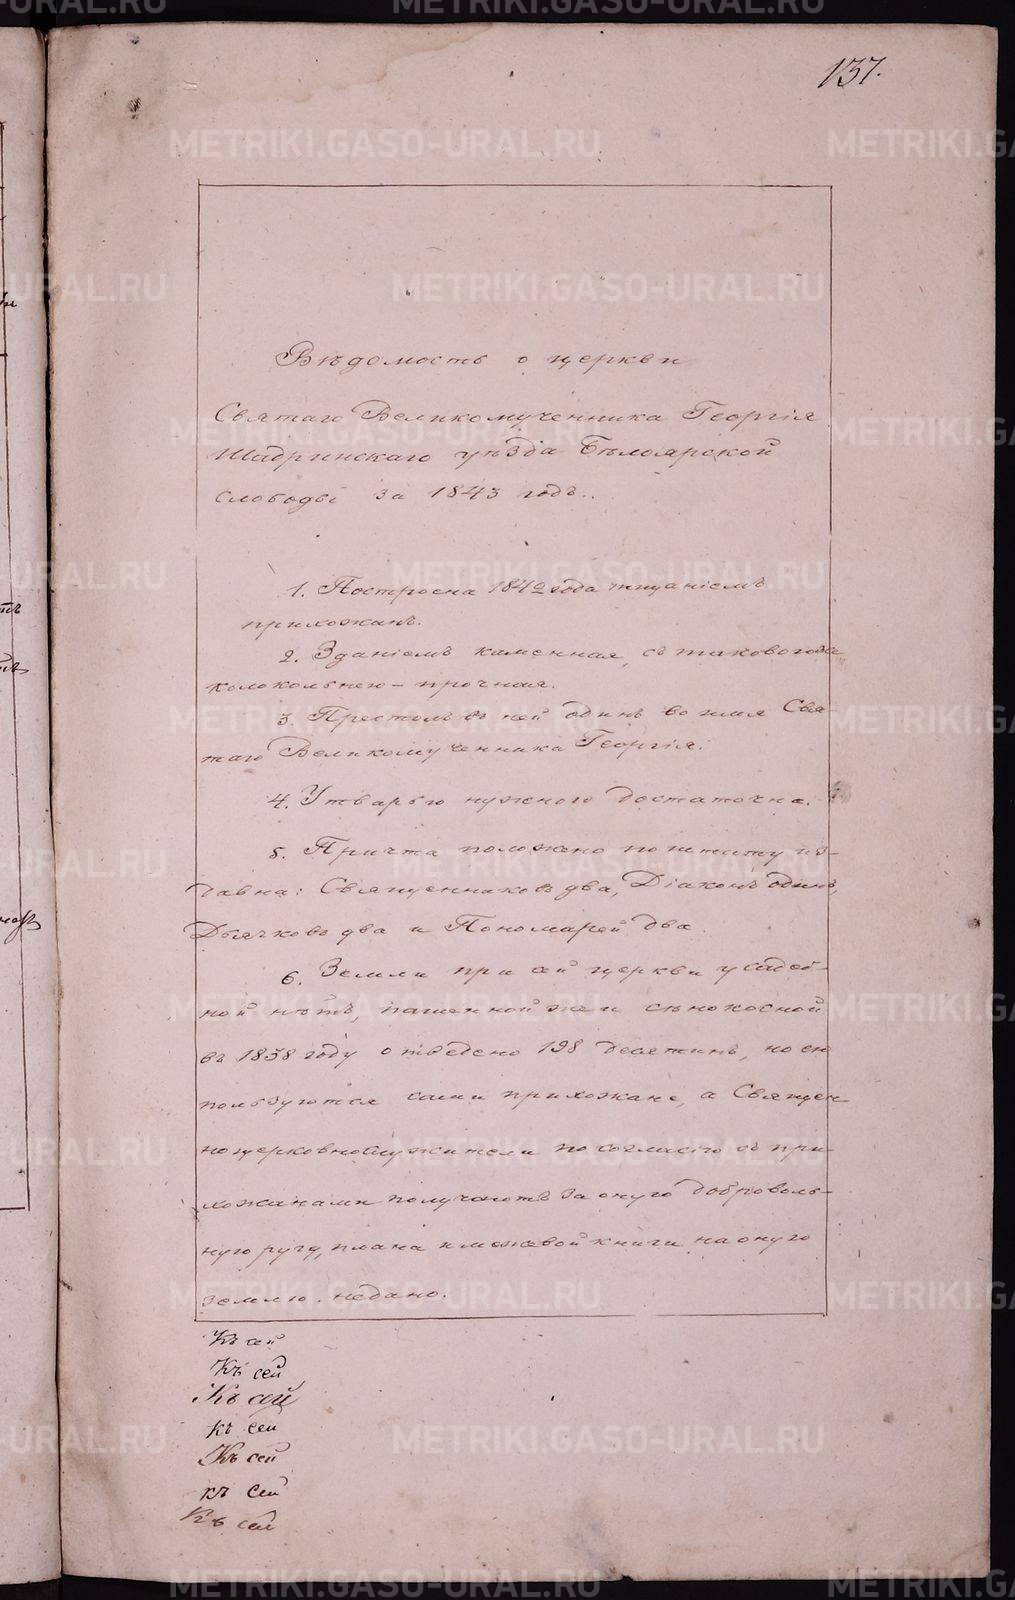 137.
Вѣдомость о церкви
Святаго Великомученника Георгія
Шадринскаго уѣзда Бѣлоярской
слободы за 1843 годъ..
1. Построена 1842 года тщаніемъ
прихожанъ.
2. Зданіемъ каменная, съ таковою же
колокольнею – прочная.
3. Престолъ въ ней одинъ во имя Свя-
таго Великомученника Георгія.
4. Утварью нужною достаточна.
5. Причта положено по штату из-
давна: Священниковъ два, Діаконъ одинъ,
Дьячковъ два и Пономарей два.
6. Земли при сей церкви усадеб-
ной нѣтъ, пашенной же и сѣнокосной
въ 1838 году отведено 198 десятинъ, но ею
пользуются сами прихожане, а Священ
ноцерковнослужители по согласію съ при-
хожанами получаютъ за оную доброволь-
ную ругу, плана и межевой книги на оную
землю недано.
Къ сей
Къ сей
Къ сей
къ сей
Къ сей
къ сей
Къ сей
METRIKI.GASO-URAL.RU